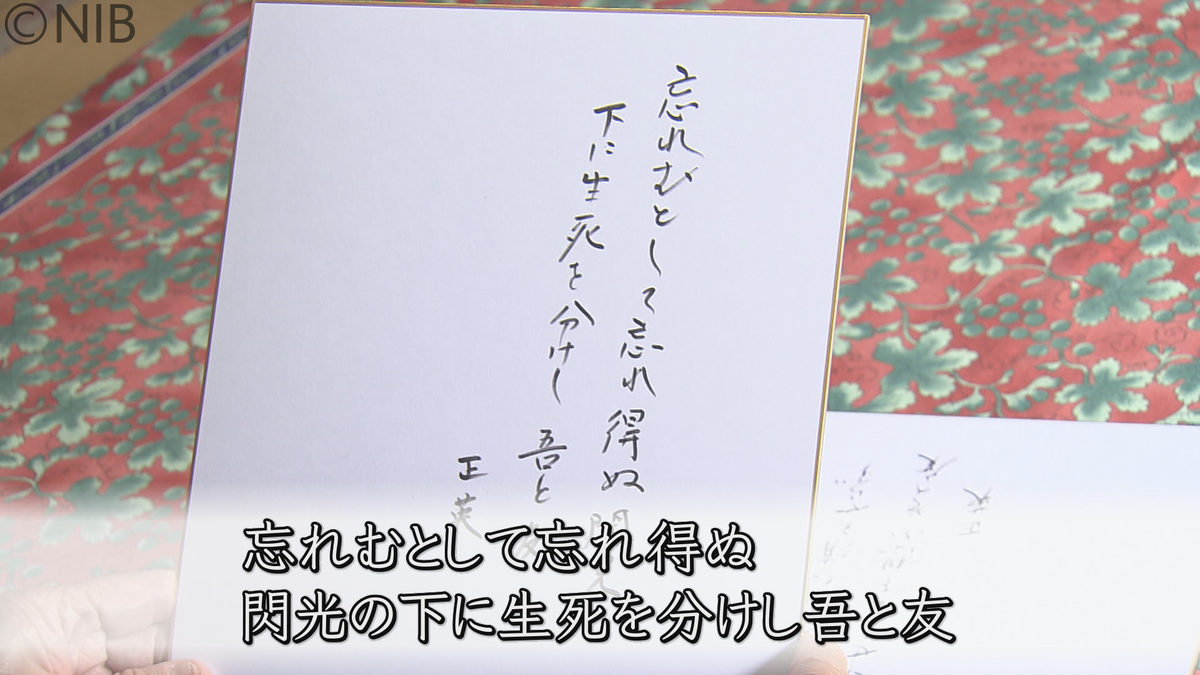 ©NIB
忘れむとして忘れ得ぬ閃
下に生死を分けし 吾と
正英
忘れむとして忘れ得ぬ
閃光の下に生死を分けし吾と友